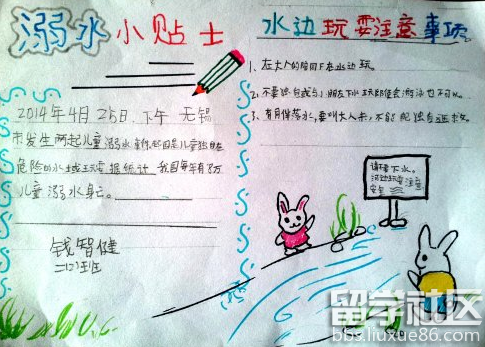 溺水小贴士
2014年4月25日,下午 无锡
市发生两起儿童溺水事件,都是儿童独自在
危险的水域玩耍,据统计,我国每年有3万
儿童溺水身亡。
钱智健
二(7)班
水边玩耍注意事项
1、在大人的陪同下在水边玩。
2、不要独自或与小朋友下水玩即使会游泳也不可以。
3、有同伴落水,要叫大人来,不能独自去救。
请不要下水。
河边玩耍注意
安全
留学社区
bbs.liuxue86.com